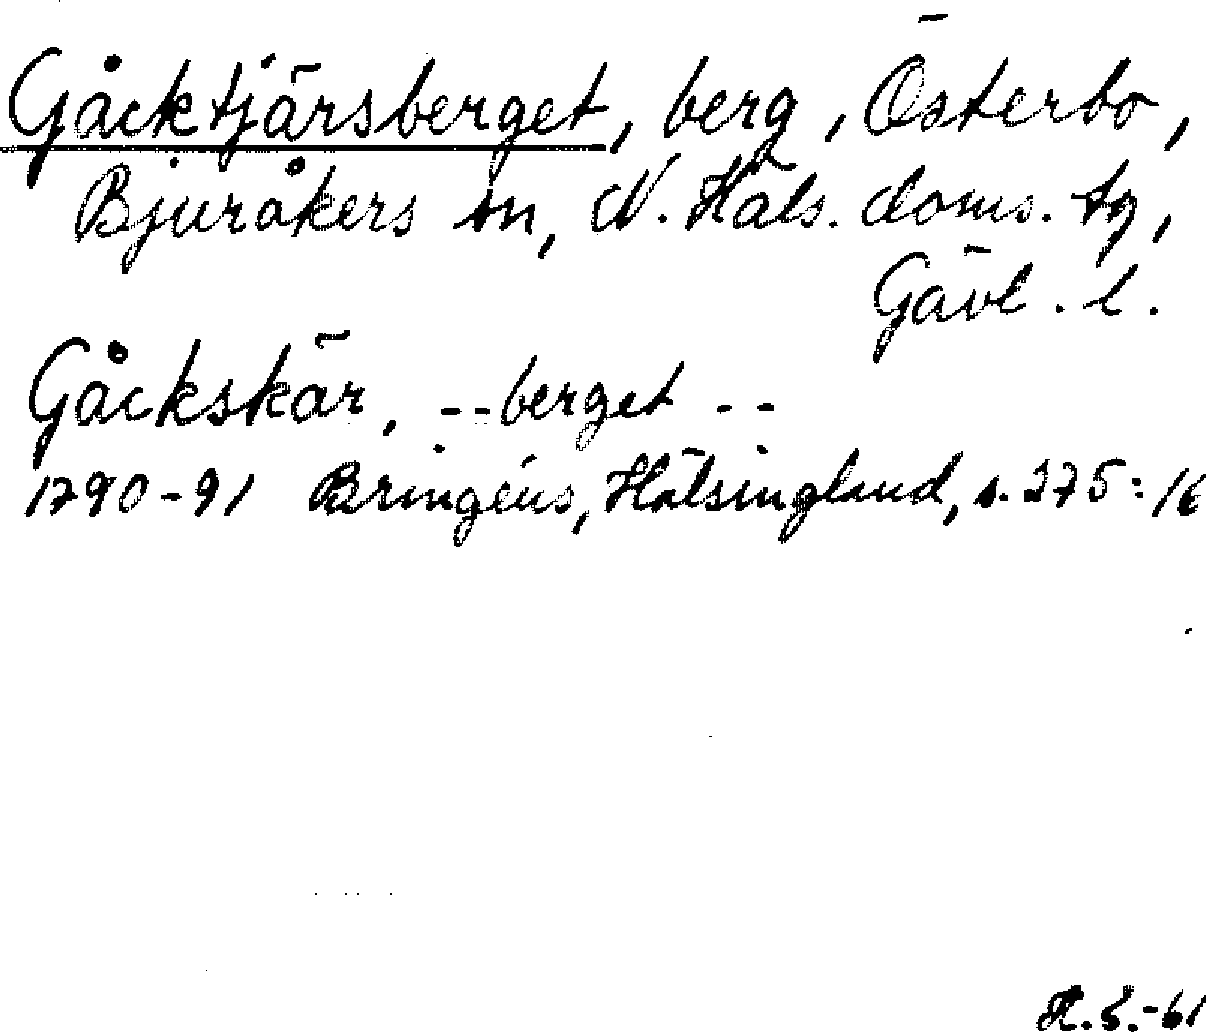 Gåcktjärsberget, berg, Österbo,
Bjuråkers sn, N. Häls. doms. tg,
Gävl. l.
Gåckskär, --berget --
1790-91 Bringéus, Hälsingland, s. 375:16
H.S.-61